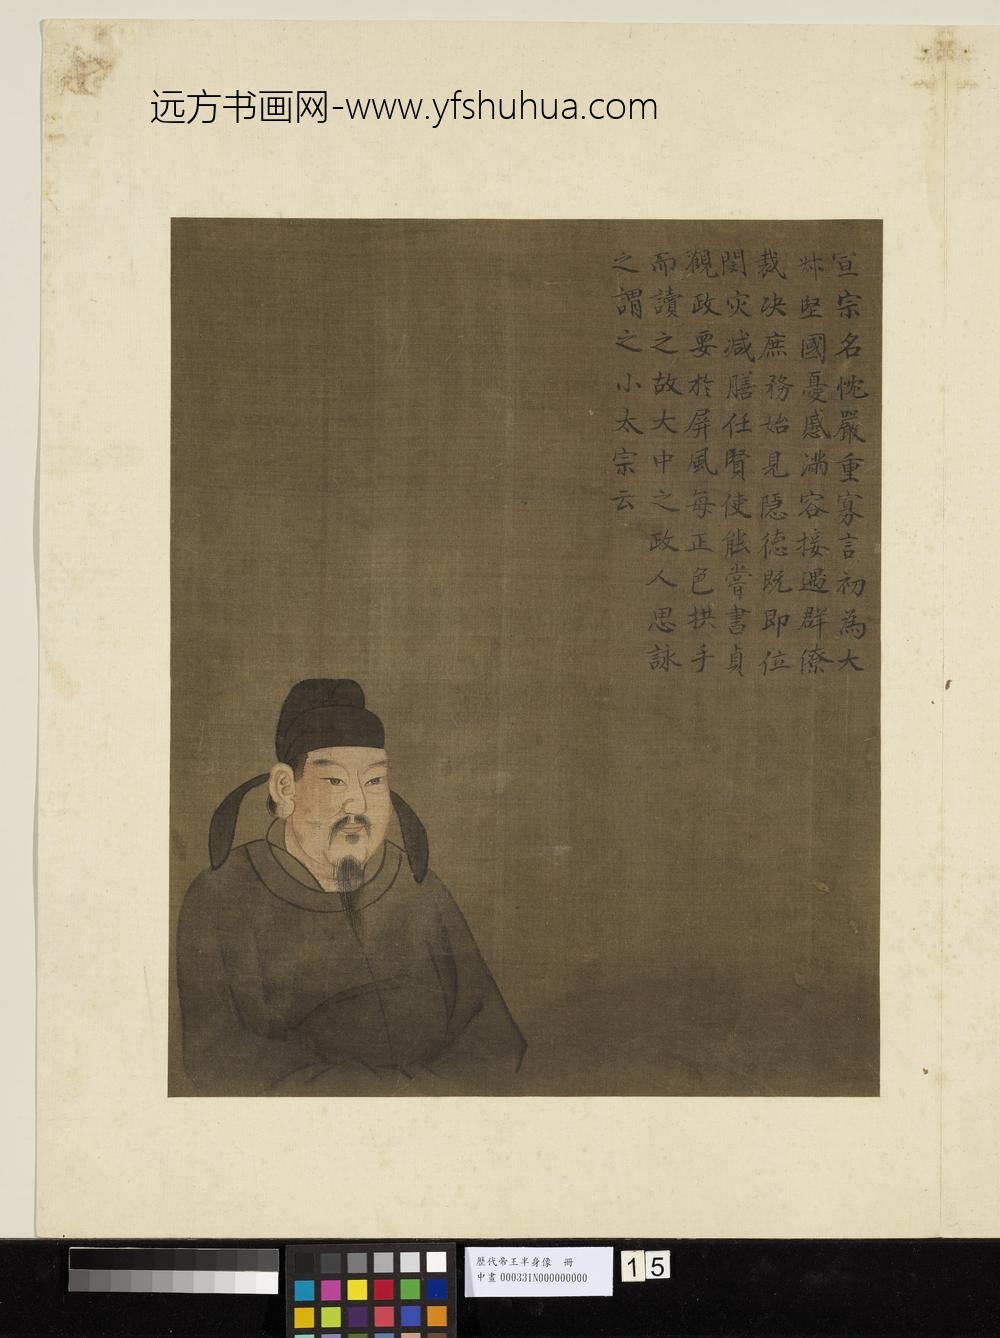 远方书画网-www.yfshuhua.com
宣宗名忱嚴重寡言初為大
外堅國憂感滿容接遇群僚
裁决庶務始見隱德既即位
閔灾減膳任賢使能嘗書貞
觀政要於屏風每正色拱手
而讀之故大中之政人思詠
之謂之小太宗云
歷代帝王半身像 冊
中畫 000331N000000000
15